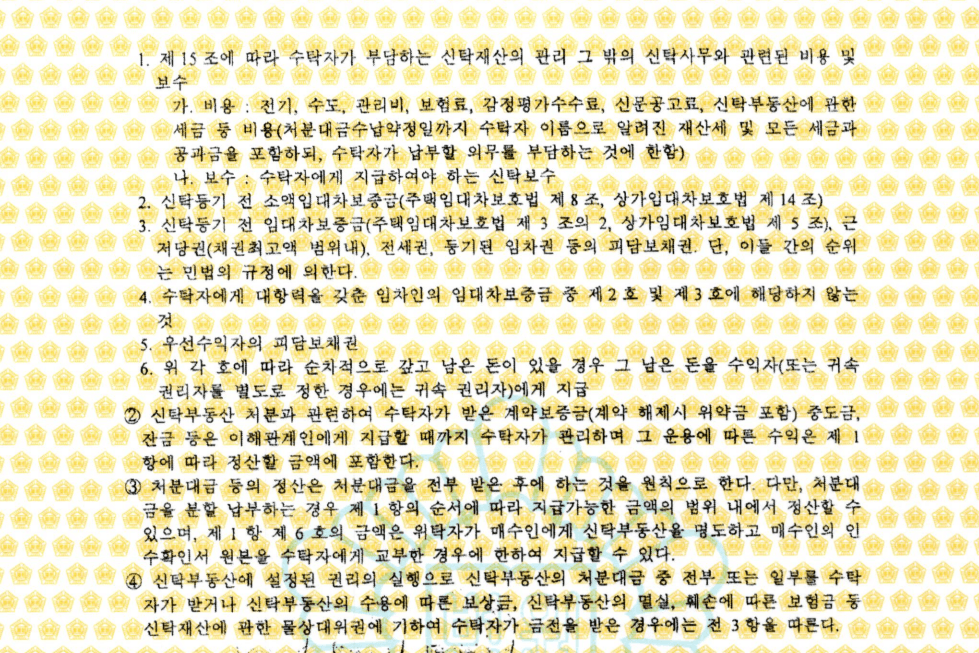 1. 제 15 조에 따라 수탁자가 부담하는 신탁재산의 관리 그 밖의 신탁사무와 관련된 비용 및
보수
가. 비용 : 전기, 수도, 관리비, 보험료, 감정평가수수료, 신문공고료, 신탁부동산에 관한
세금 등 비용(처분대금수납약정일까지 수탁자 이름으로 알려진 재산세 및 모든 세금과
공과금을 포함하되, 수탁자가 납부할 의무를 부담하는 것에 한함)
나. 보수 : 수탁자에게 지급하여야 하는 신탁보수
2. 신탁등기 전 소액임대차보증금(주택임대차보호법 제 8 조, 상가임대차보호법 제 14 조)
3. 신탁등기 전 임대차보증금(주택임대차보호법 제 3 조의 2, 상가임대차보호법 제 5 조), 근
저당권(채권최고액 범위내), 전세권, 등기된 임차권 등의 피담보채권. 단, 이들 간의 순위
는 민법의 규정에 의한다.
4. 수탁자에게 대항력을 갖춘 임차인의 임대차보증금 중 제 2 호 및 제 3 호에 해당하지 않는
것
5. 우선수익자의 피담보채권
6. 위 각 호에 따라 순차적으로 갚고 남은 돈이 있을 경우 그 남은 돈을 수익자(또는 귀속
권리자를 별도로 정한 경우에는 귀속 권리자)에게 지급
② 신탁부동산 처분과 관련하여 수탁자가 받은 계약보증금(계약 해제시 위약금 포함) 중도금,
잔금 등은 이해관계인에게 지급할 때까지 수탁자가 관리하며 그 운용에 따른 수익은 제 1
항에 따라 정산할 금액에 포함한다.
③ 처분대금 등의 정산은 처분대금을 전부 받은 후에 하는 것을 원칙으로 한다. 다만, 처분대
금을 분할 납부하는 경우 제 1 항의 순서에 따라 지급가능한 금액의 범위 내에서 정산할 수
있으며, 제 1 항 제 6 호의 금액은 위탁자가 매수인에게 신탁부동산을 명도하고 매수인의 인
수확인서 원본을 수탁자에게 교부한 경우에 한하여 지급할 수 있다.
④ 신탁부동산에 설정된 권리의 실행으로 신탁부동산의 처분대금 중 전부 또는 일부를 수탁
자가 받거나 신탁부동산의 수용에 따른 보상금, 신탁부동산의 멸실, 훼손에 따른 보험금 등
신탁재산에 관한 물상대위권에 기하여 수탁자가 금전을 받은 경우에는 전 3 항을 따른다.